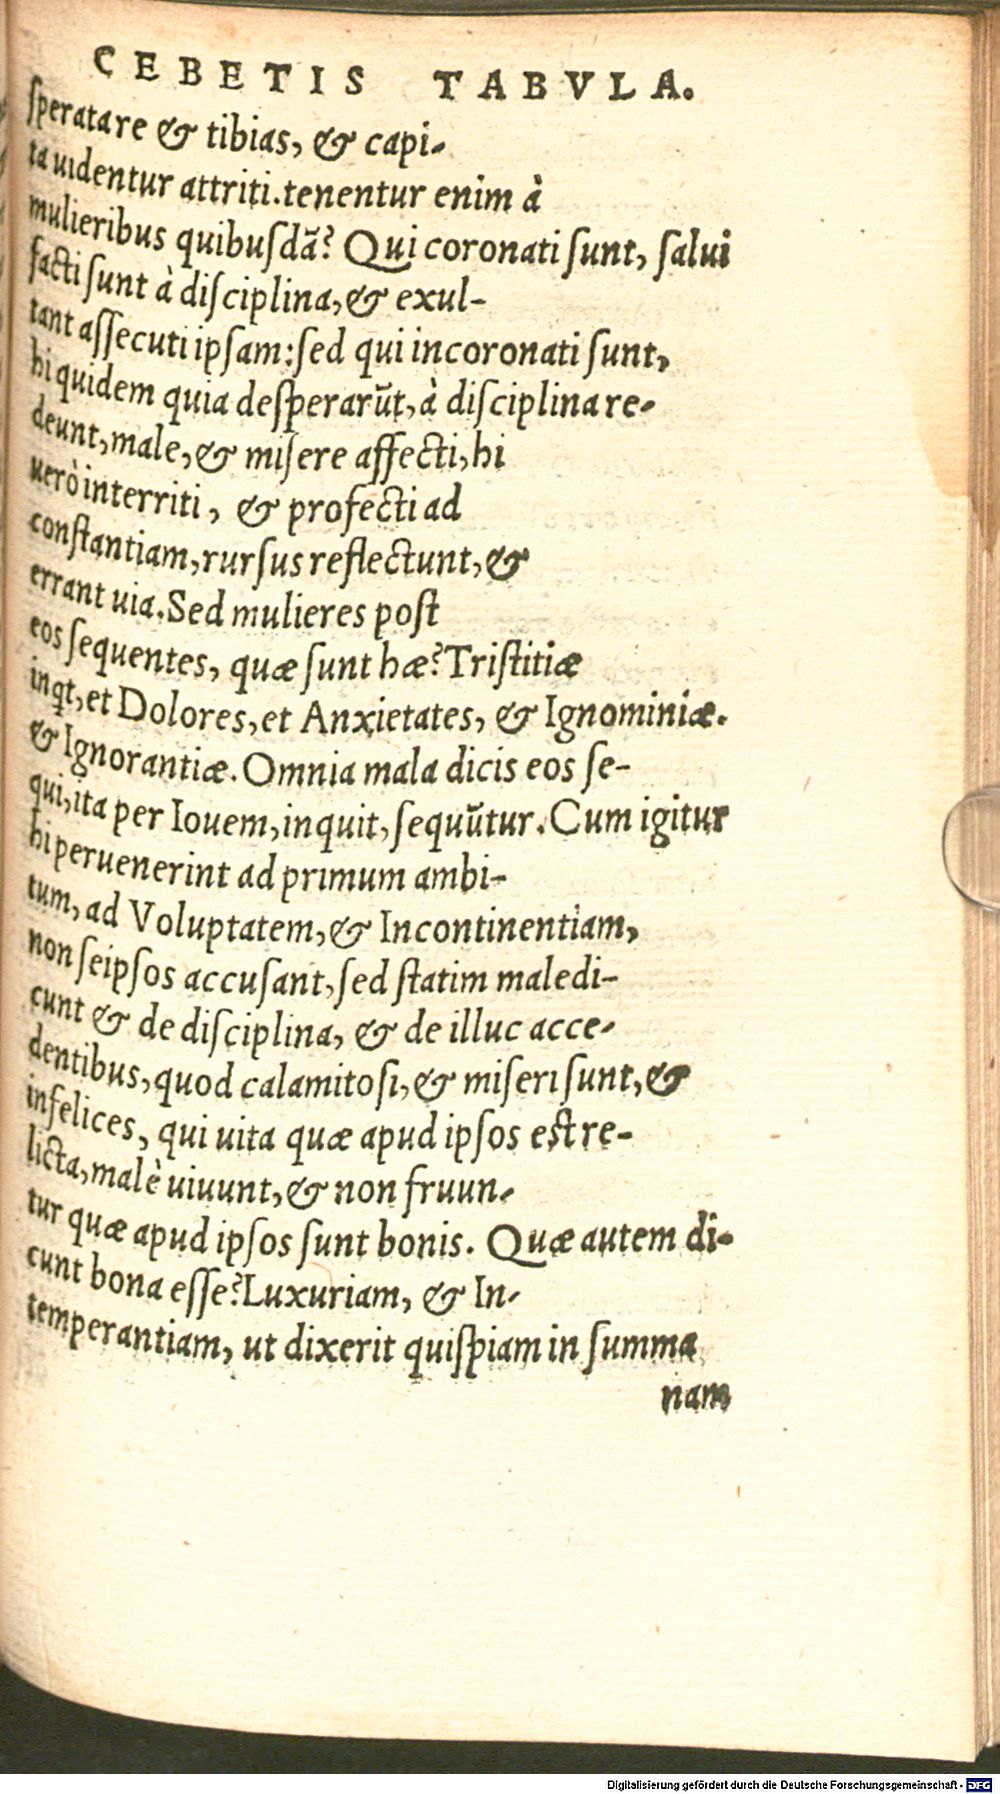 CEBETIS TABVLA.
ſperatare & tibias, & capi-
ta uidentur attriti. tenentur enim à
mulieribus quibuſdã? Qui coronati ſunt, ſalui
facti ſunt à diſciplina, & exul-
tant aſſecuti ipſam: ſed qui incoronati ſunt,
hi quidem quia deſperarũt, à diſciplina re-
deunt, male, & miſere affecti, hi
uerò interriti, & profecti ad
conſtantiam, rurſus reflectunt, &
errant uia. Sed mulieres poſt
eos ſequentes, quæ ſunt hæ? Triſtitiæ
inqt, et Dolores, et Anxietates, & Ignominiæ.
& Ignorantiæ. Omnia mala dicis eos ſe-
qui, ita per Iouem, inquit, ſequũtur. Cum igitur
hi peruenerint ad primum ambi-
tum, ad Voluptatem, & Incontinentiam,
non ſeipſos accuſant, ſed ſtatim maledi-
cunt & de diſciplina, & de illuc acce-
dentibus, quod calamitoſi, & miſeri ſunt, &
infelices, qui uita quæ apud ipſos eſt re-
licta, malè uiuunt, & non fruun-
tur quæ apud ipſos ſunt bonis. Quæ autem di-
cunt bona eſſe? Luxuriam, & In-
temperantiam, ut dixerit quiſpiam in ſumma
nam
Digitalisierung gefördert durch die Deutsche Forschungsgemeinschaft - DFG